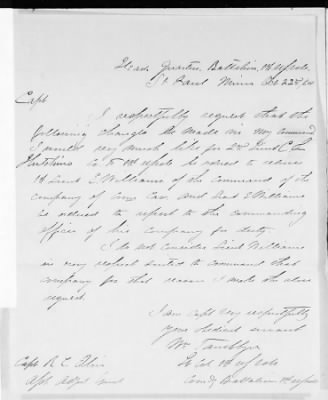 Head Quarters Battalion, 1st US Vols
St Paul Minn Oct 22nd, 64
Capt
I respectfully request that the
following changes be made in my command
I would very much like for 2nd Lieut C.
Hutchins Co 1st US Vols be ordered to relieve
1st Lieut S. Williams of the command of the
company of Cav, and Lieut S Williams
is ordered to report to the commanding
officer of his company for duty.
I do not consider Lieut Williams
in any respect suited to command that
company for that reason I make the above
request
I am Capt very respectfully
Your obedient servant
Wm Tamblyn
Lt Col 1st US Vols
Comdg Battalion 1st US Vols
Capt R. C. Olin
Asst Adjt Genl